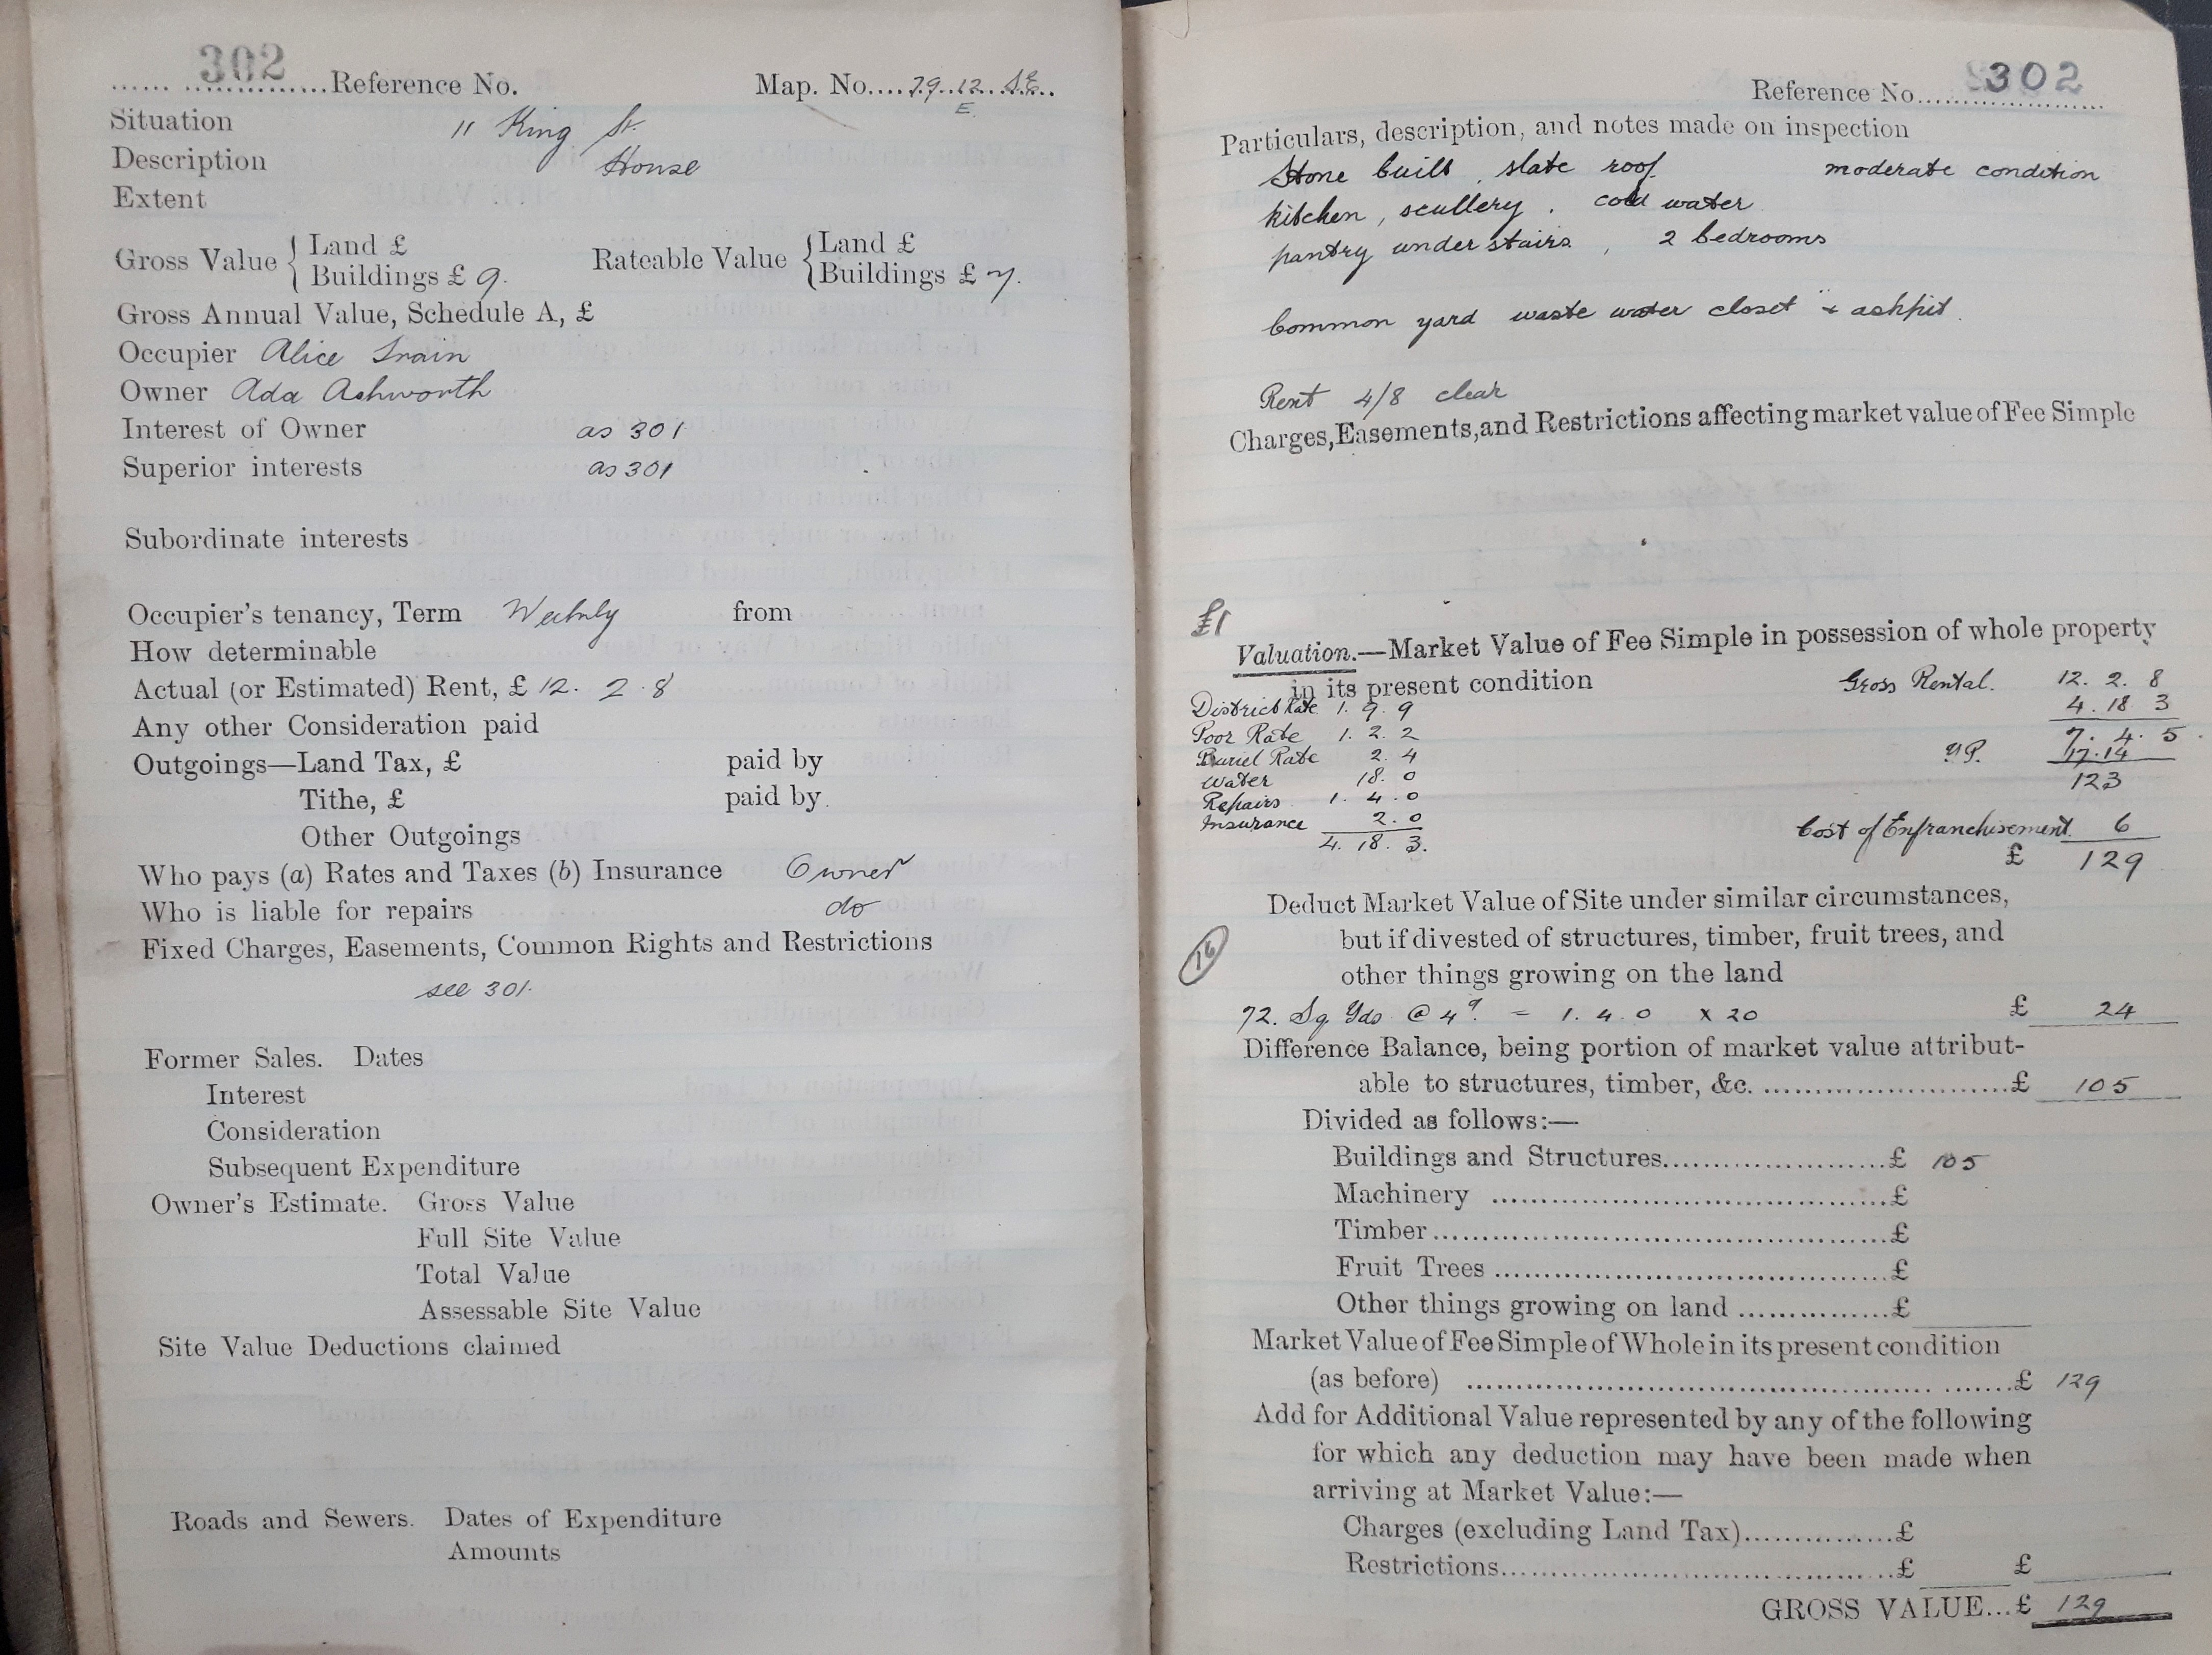 302 Reference No. Map. No. 79. 12. S.E.
E.
Situation 11 King St.
Description House
Extent
Gross Value { Land £ Rateable Value { Land £
Buildings £ 9. Buildings £ 7.
Gross Annual Value, Schedule A, £
Occupier Alice
Owner Ada Ashworth
Interest of Owner as 301
Superior interests as 301
Subordinate interests
Occupier's tenancy, Term Weekly from
How determinable
Actual (or Estimated) Rent, £ 12. 2. 8
Any other Consideration paid
Outgoings—Land Tax, £ paid by
Tithe, £ paid by
Other Outgoings
Who pays (a) Rates and Taxes (b) Insurance Owner
Who is liable for repairs do
Fixed Charges, Easements, Common Rights and Restrictions
see 301.
Former Sales. Dates
Interest
Consideration
Subsequent Expenditure
Owner's Estimate. Gross Value
Full Site Value
Total Value
Assessable Site Value
Site Value Deductions claimed
Roads and Sewers. Dates of Expenditure
Amounts
Reference No. 302
Particulars, description, and notes made on inspection
Stone built, slate roof moderate condition
kitchen, scullery, cold water
pantry under stairs, 2 bedrooms
Common yard waste water closet & ashpit.
Rent 4/8 clear
Charges, Easements, and Restrictions affecting market value of Fee Simple
£1
Valuation.—Market Value of Fee Simple in possession of whole property
in its present condition Gross Rental. 12. 2. 8
District Rate 1. 9. 9 4. 18 3
Poor Rate 1. 2. 2 7. 4. 5
Buriel Rate 2. 4 YP. 17.14
Water 18. 0 123
Repairs 1. 4. 0
Insurance 2. 0 Cost of Enfranchisement. 6
4. 18. 3. £ 129
Deduct Market Value of Site under similar circumstances,
but if divested of structures, timber, fruit trees, and
16
other things growing on the land
72. Sq Yds @ 4d. = 1. 4. 0 x 20 £ 24
Difference Balance, being portion of market value attribut-
able to structures, timber, &c. £ 105
Divided as follows:—
Buildings and Structures £ 105
Machinery £
Timber £
Fruit Trees £
Other things growing on land £
Market Value of Fee Simple of Whole in its present condition
(as before) £ 129
Add for Additional Value represented by any of the following
for which any deduction may have been made when
arriving at Market Value:—
Charges (excluding Land Tax) £
Restrictions £ £
GROSS VALUE... £ 129